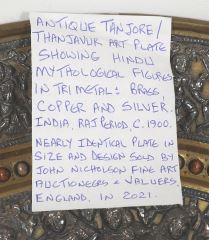 ANTIQUE TANJORE/
THANJAVUR ART PLATE
SHOWING HINDU
MYTHOLOGICAL FIGURES
IN TRIMETAL: BRASS
COPPER AND SILVER.
INDIA, RAJ PERIOD, C. 1900.
NEARLY IDENTICAL PLATE IN
SIZE AND DESIGN SOLD BY
JOHN NICHOLSON FINE ART
AUCTIONEERS & VALUERS,
ENGLAND, IN 2021.